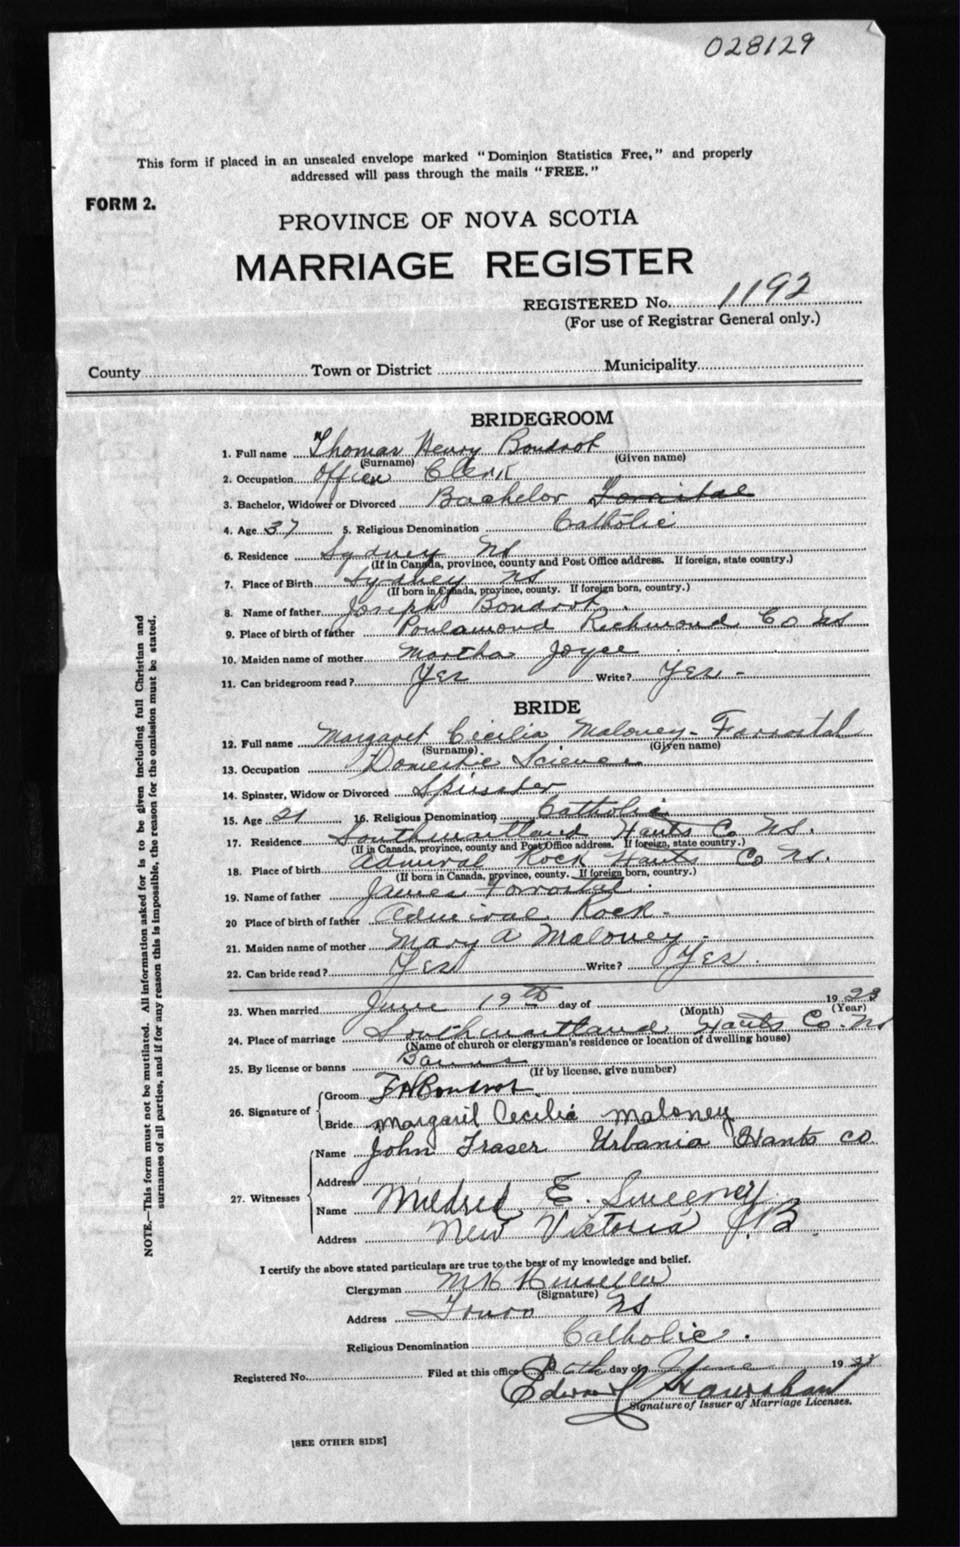 028129
This form if placed in an unsealed envelope marked "Dominion Statistics Free," and properly
addressed will pass through the mails "FREE."
FORM 2.
PROVINCE OF NOVA SCOTIA
MARRIAGE REGISTER
REGISTERED No. 1192
(For use of Registrar General only.)
County Town or District Municipality
BRIDEGROOM
1. Full name Thomas Henry Boudrot
(Surname) (Given name)
2. Occupation Office Clerk
3. Bachelor, Widower or Divorced Bachelor
4. Age 37 5. Religious Denomination Catholic
6. Residence Sydney NS
(If in Canada, province, county and Post Office address. If foreign, state country.)
7. Place of Birth Sydney NS
(If born in Canada, province, county. If foreign born, country.)
8. Name of father Joseph Boudrot
9. Place of birth of father Poulamond Richmond Co NS
10. Maiden name of mother Martha Joyce
11. Can bridegroom read? Yes Write? Yes -
BRIDE
12. Full name Margaret Cecilia Maloney - Forrostal
(Surname) (Given name)
13. Occupation Domestic Science
14. Spinster, Widow or Divorced Spinster
15. Age 21 16. Religious Denomination Catholic
17. Residence South maitland Hants Co NS.
(If in Canada, province, county and Post Office address. If foreign, state country.)
18. Place of birth Admiral Rock Hants Co NS.
(If born in Canada, province, county. If foreign born, country.)
19. Name of father James Forrostal
20 Place of birth of father Admiral Rock -
21. Maiden name of mother Mary A Maloney -
22. Can bride read? Yes Write? Yes.
23. When married June 19th day of 19 23
(Month) (Year)
24. Place of marriage South maitland Hants Co. NS
(Name of church or clergyman's residence or location of dwelling house)
25. By license or banns Banns
(If by license, give number)
26. Signature of Groom T H Boudrot
Bride Margaret Cecilia Maloney
27. Witnesses Name John Fraser Urbania Hants Co
Address
Name Mildred E. Sweeney
Address New Victoria C.B
I certify the above stated particulars are true to the best of my knowledge and belief.
Clergyman M H
(Signature)
Address Truro NS
Religious Denomination Catholic.
Registered No. Filed at this office day of June 19 23
Edward
Signature of Issuer of Marriage Licenses.
[SEE OTHER SIDE]
NOTE.—This form must not be mutilated. All information asked for is to be given including full Christian and
surnames of all parties, and if for any reason this is impossible, the reason for the omission must be stated.